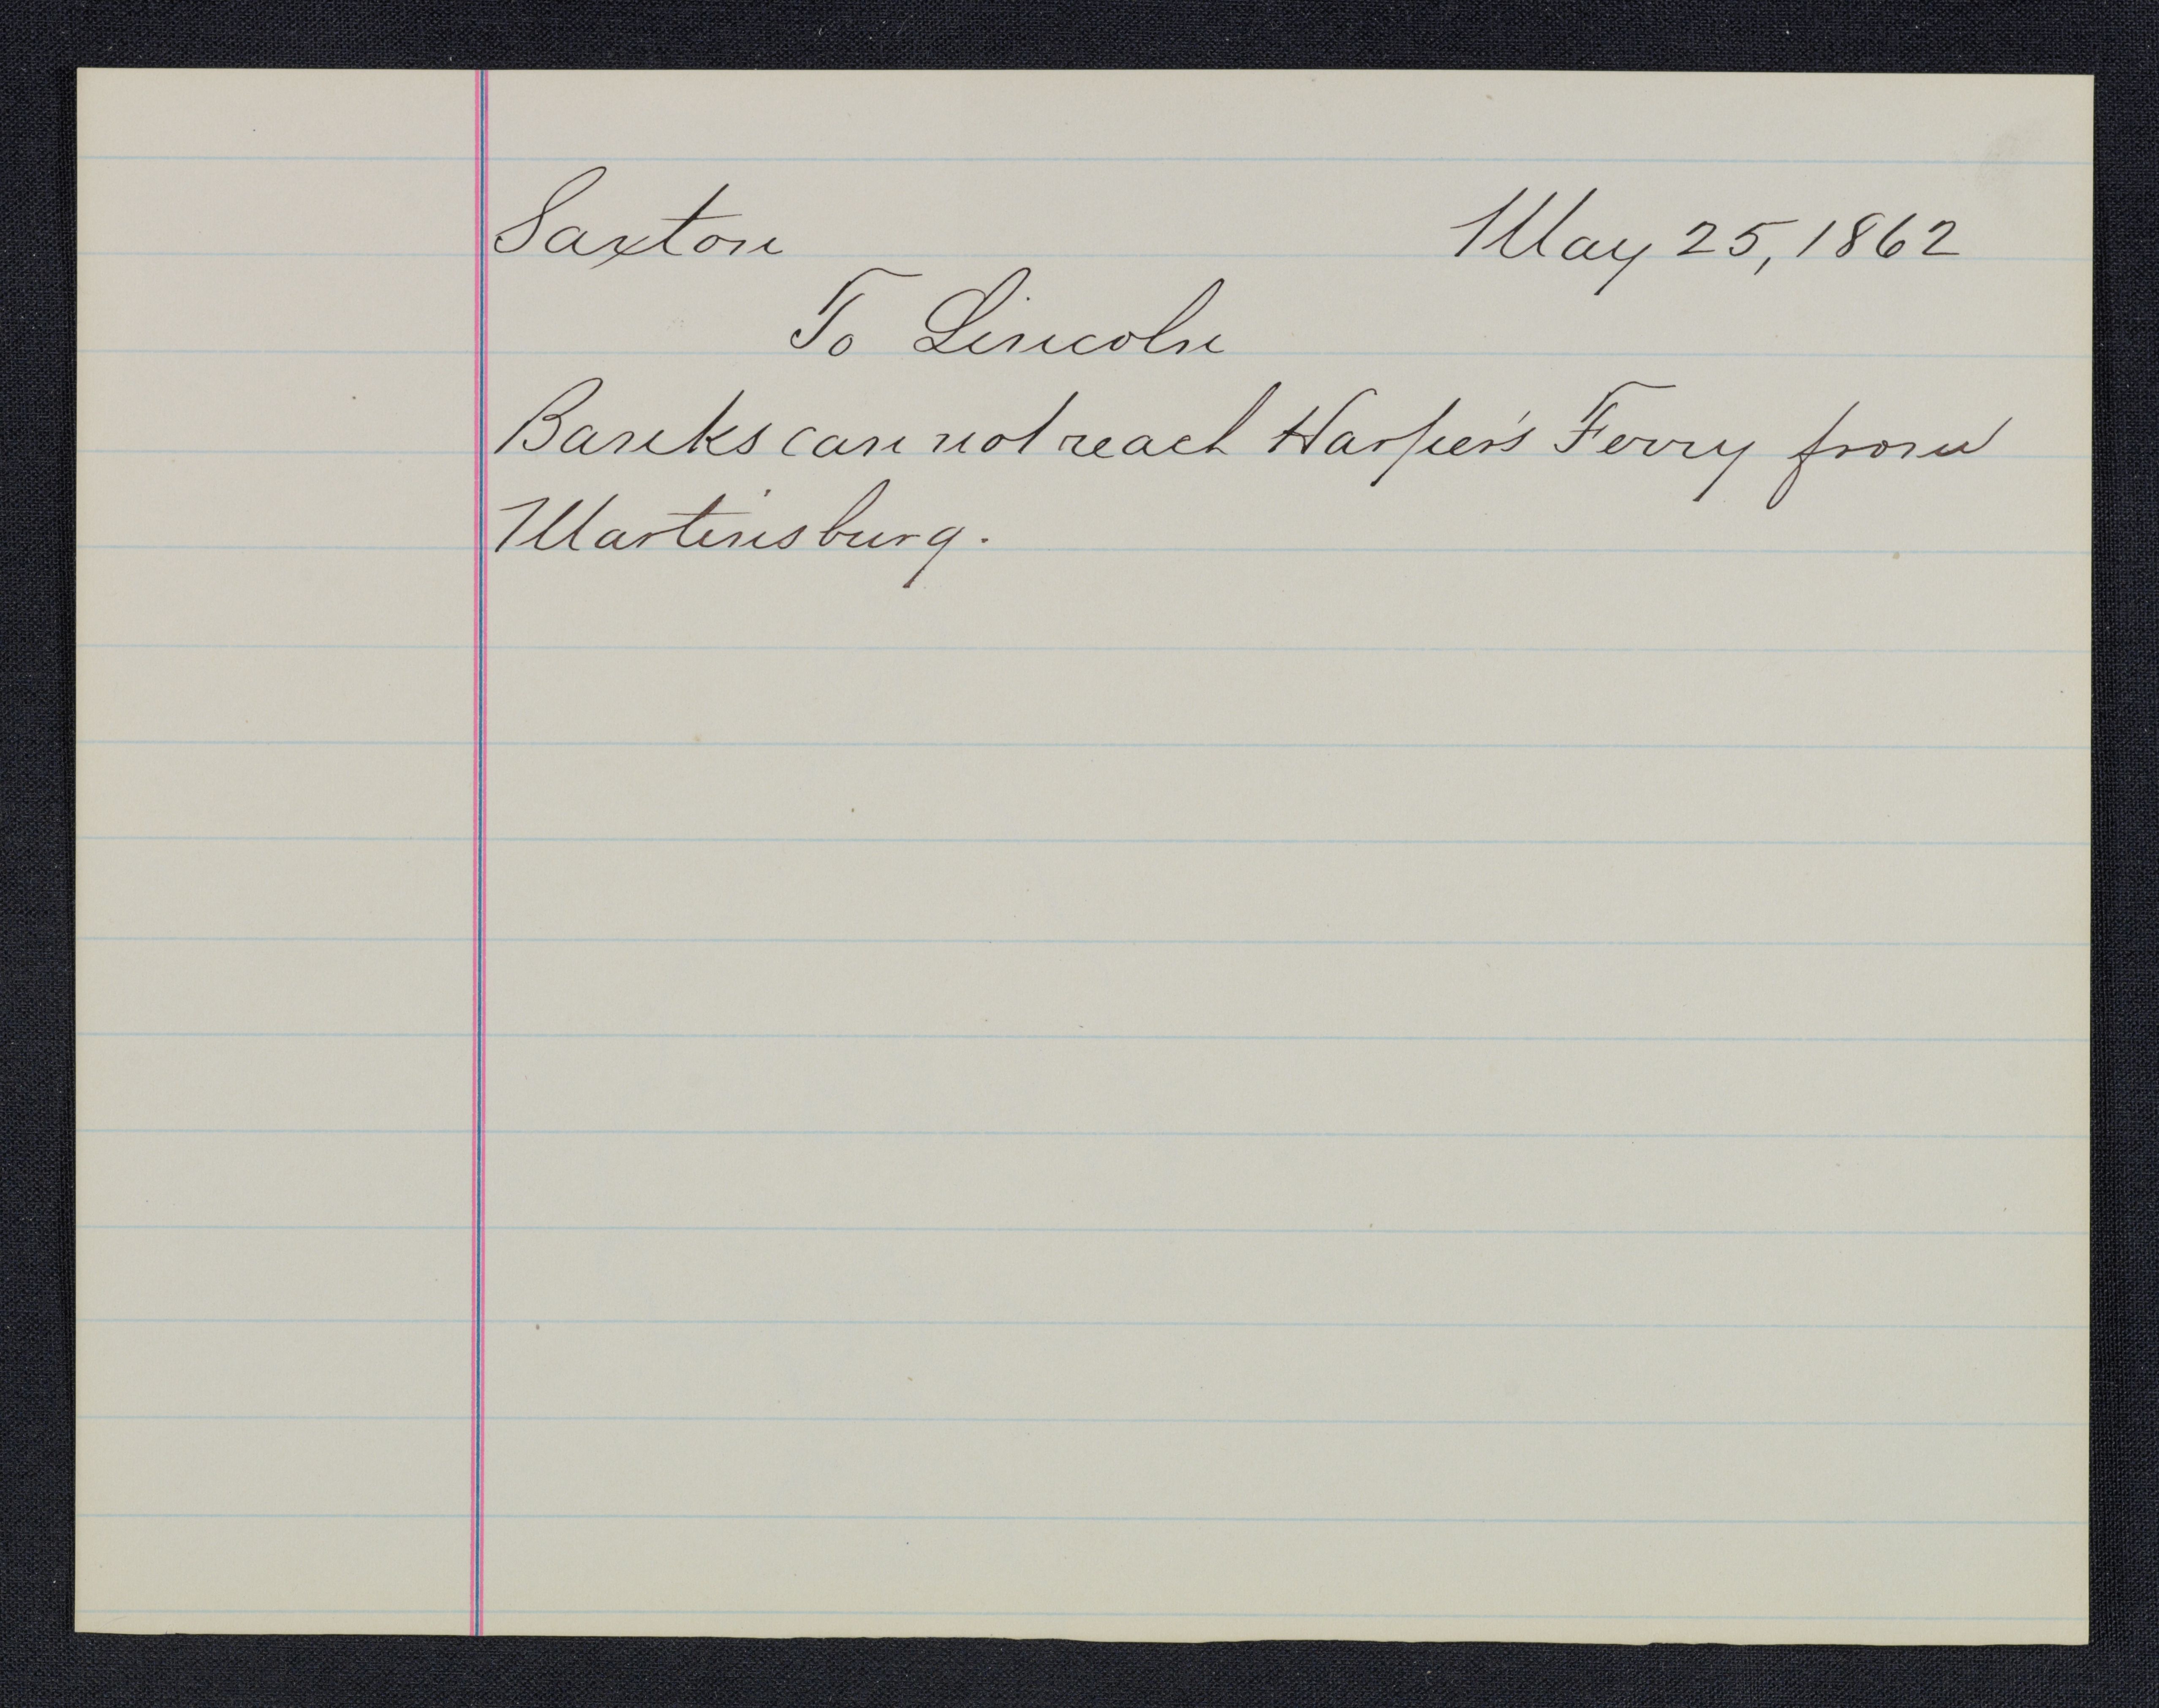 Saxton May 25, 1862
To Lincoln
Banks can not reach Harper's Ferry from
Martinsburg.